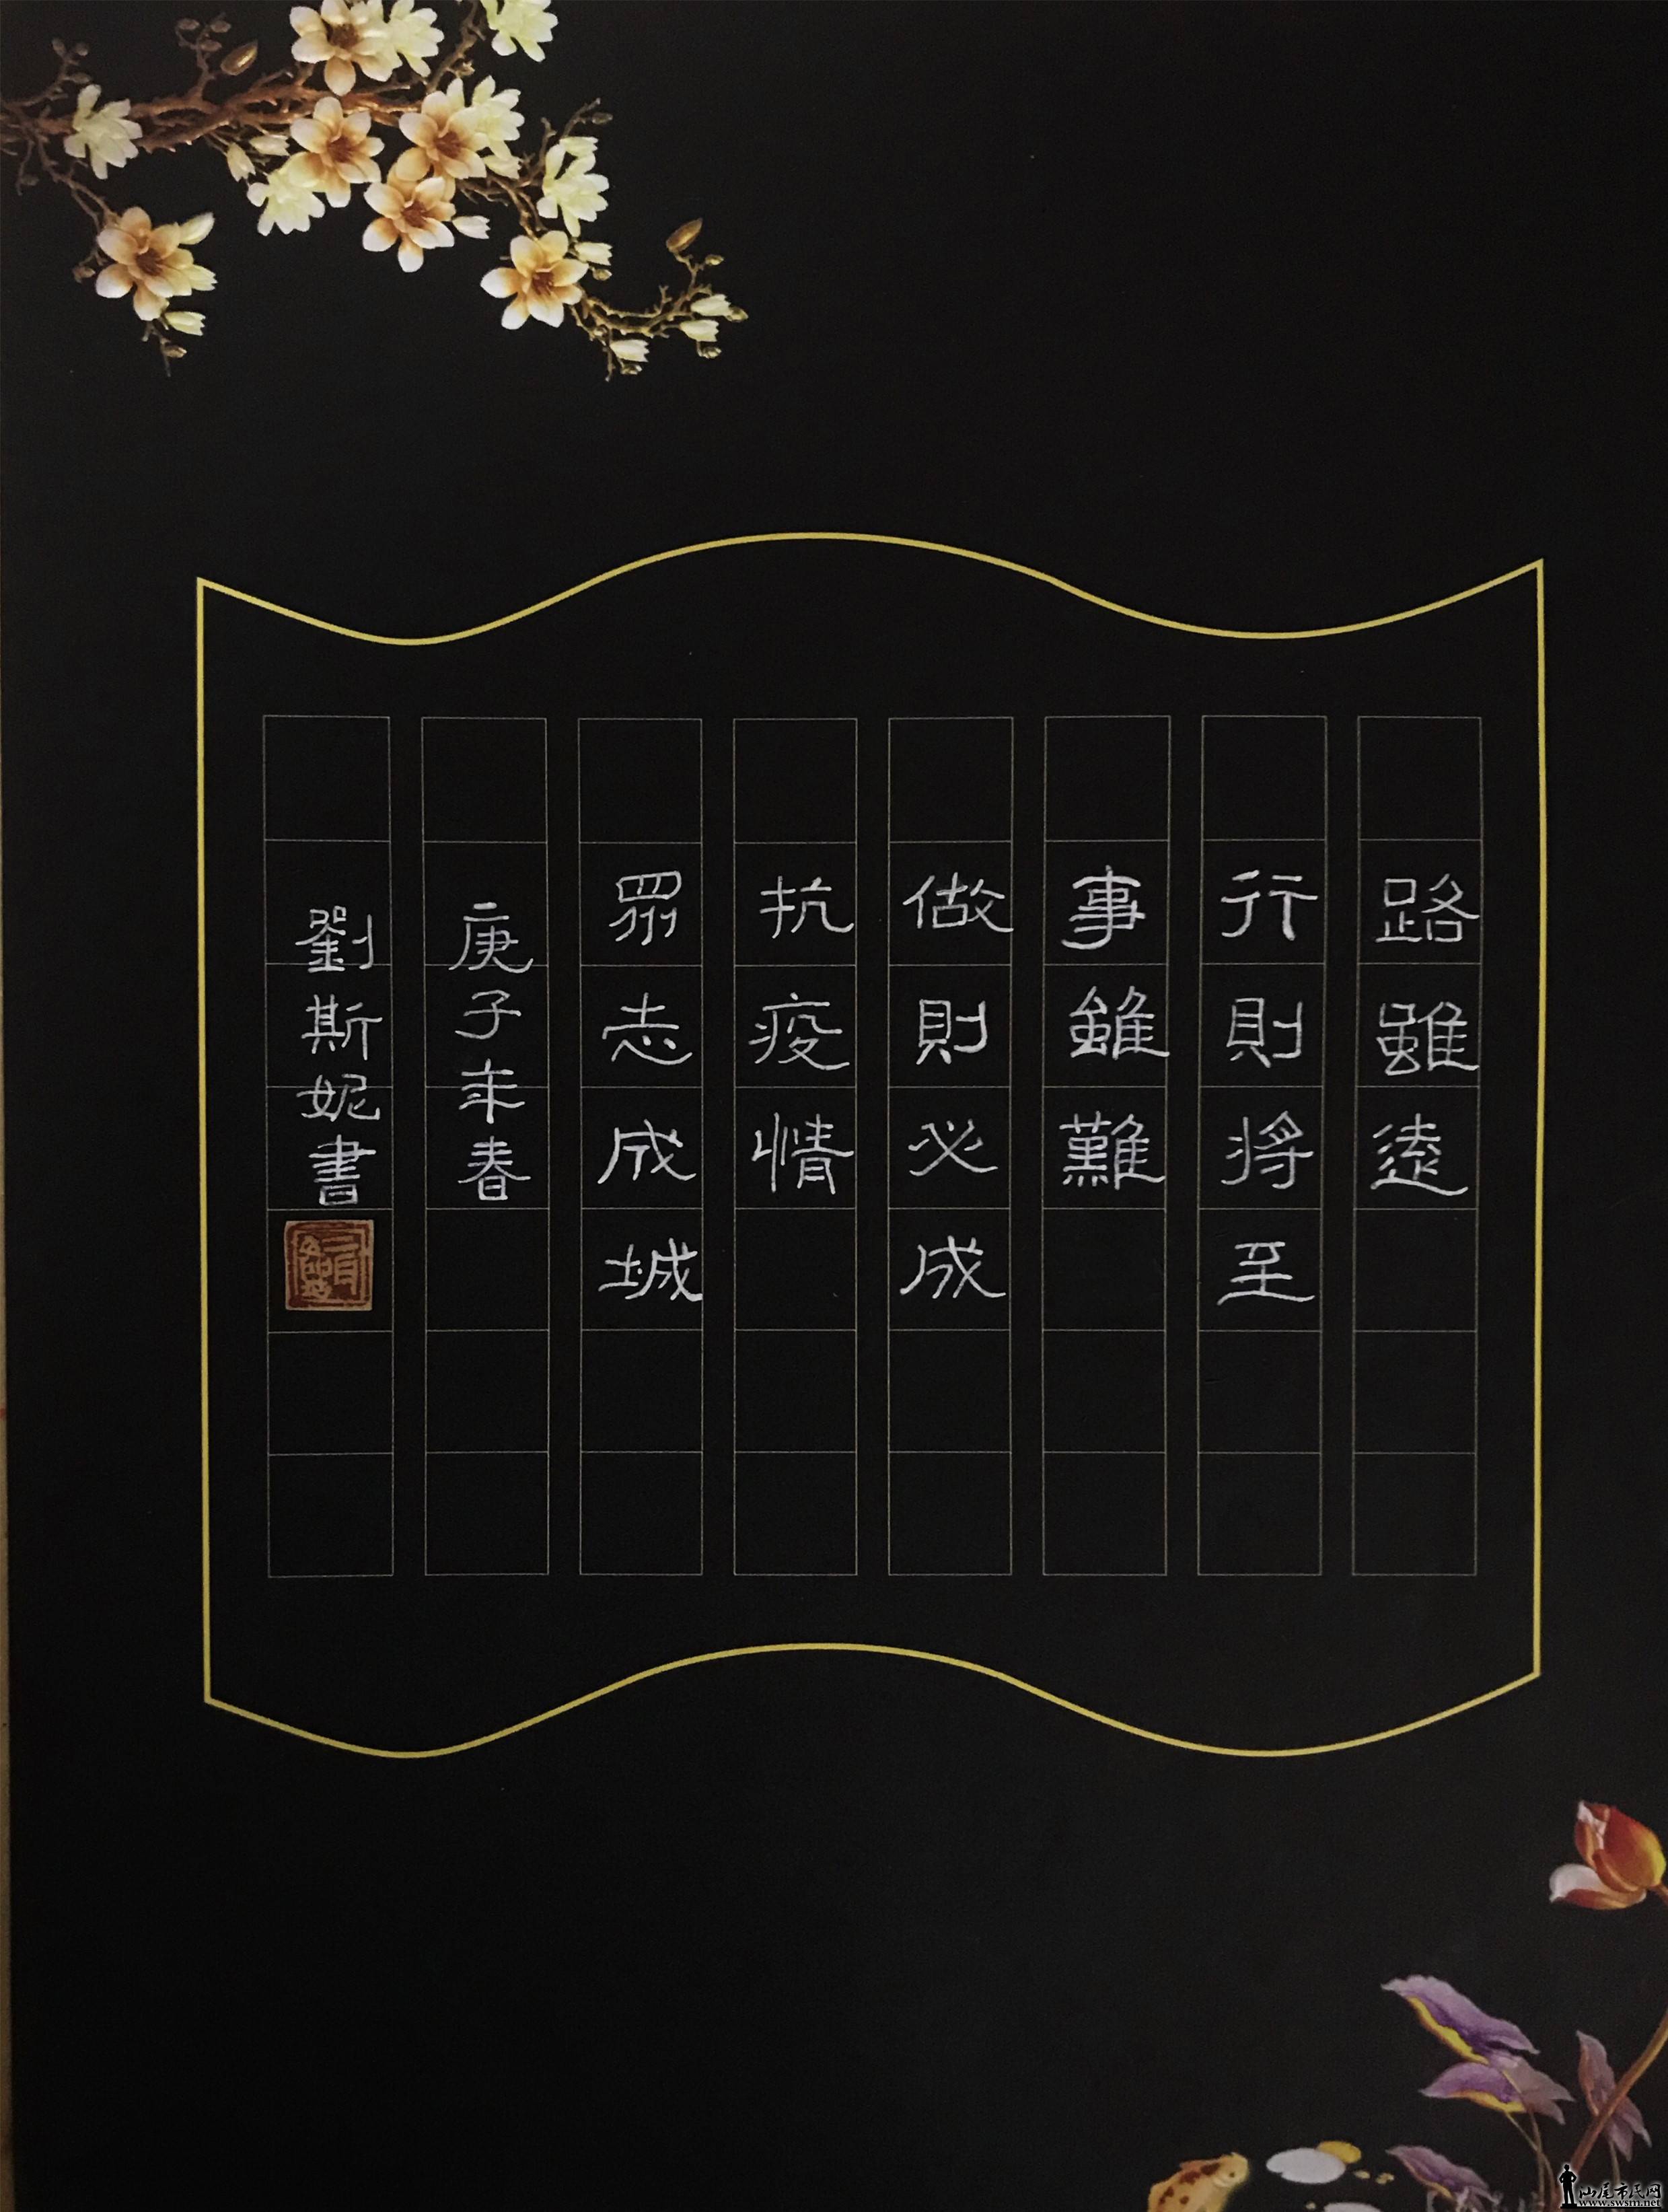 路雖遠
行則將至
事雖難
做則必成
抗疫情
眾志成城
庚子年春
劉斯妮書
汕尾市民网
www.swsm.net